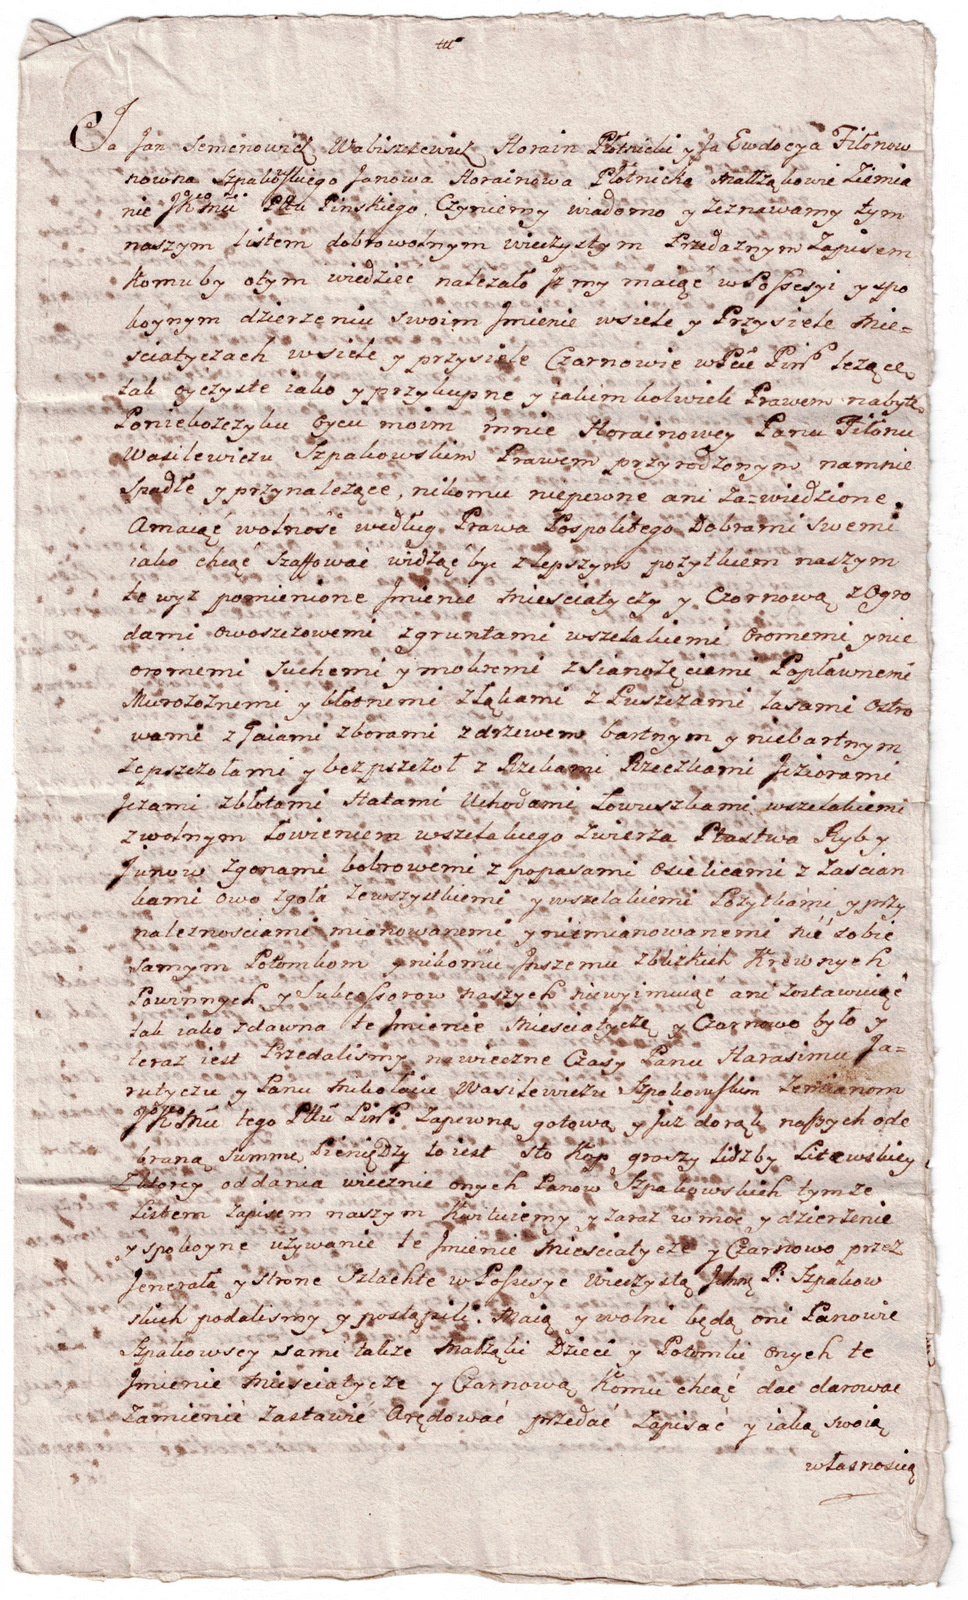 Ja Jan Semenowicz Wabiszczewicz Horain Płotnicki y Ja Ewdocya Fiłonow
nowna Szpakowskiego Janowa Horainowa Płotnicka Małżąkowie Ziemia
nie JKMci Pttu Pinskiego. Czyniemy wiadomo y zeznawamy tym
naszym Listem dobrowolnym wieczystym Przedaznym Zapisem
Komuby otym wiedzieć nalezało Jz my maiąc w Possesyi y spo
koynym dzierzęniu swoim Jmienie wsiele y Przysiele Mie=
sciatyczach wsiele y przysiele Czarnowie w Pcie Pin° lezące
tak oyczyste iako y przykupne y iakimkolwiek Prawem nabyte
Poniebozczyku Oycu moim mnie Horainowey Panu Fiłonu
Wasilewiczu Szpakowskim Prawem przyrodzonym namnie
Spadłe y przynalezące, nikomu niepewne ani Za=wiedzione.
Amaiąć wolność według Prawa Pospolitego Dobrami Swemi
iako chcąć Szaffować widząć byc zlepszym pozytkiem naszym
te wyz pomienione Jmienie Miesciatyczy y Czornową z Ogro
dami owoszczowemi zgruntami wszelakiemi oromemi y nie
oromemi suchemi y mokremi z sianozęciemi Popławnemi
Murożznemi y błotnemi Złąkami z Puszczami Lasami Ostro
wami z Gaiami Zborami zdrzewem bartnym y niebartnym
Zepszczołami y bez pszczoł z Rzekami Rzeczkami Jeziorami
Jezami zbłotami Hatami Uchodami Łowuszkami wszelakiemi
z wolnym Łowieniem wszelakiego Zwierza Ptastwa Ryby
Junow Zgonami bobrowemi z popasami Osielicami z Zascian
kami owo zgoła Zewszystkiemi y wszelakiemi Pozytkami y przy
naleznosciami mianowanemi y niemianowanemi nié sobie
Samym Potomkom y nikomu Jnszemu zblizkich Krewnych
Powinnych y Sukcessorow naszych niewyimuiąć ani zostawuiąć
tak iako zdawna te Jmienie Miesciatycze y Czarnowo było y
teraz iest Przedalismy na wieczne Czasy Panu Harasimu Ja=
rutyczu y Panu Mikołaiu Wasilewiczu Szpakowskim Zemianom
JKMci tego Pttu Pin° Zapewną gotową y Juz dorąk naszych ode
braną Summę Pieniędzy to iest Sto Kop groszy Lidzby Litewskiey
Zktorey oddania wiecznie onych Panow Szpakowskich tymze
Listem Zapisem naszym Kwituiemy y zaraz w moc y dzierzenie
y spokoyne uzywanie te Jmienie Miesciatycze y Czarnowo przez
Jenerała y Stronę Szlachte w Possesye Wieczystą Jchmę P: Szpakow
skich podalismy y postąpili. Maią y wolni będą oni Panowie
Szpakowscy sami takze Małżąki Dzieci y Potomki onych te
Jmienie Miesciatycze y Czarnową Komu chcąć dac darowac
Zamienić Zastawić Arędować przedać Zapisać y iaką swoią
własnoscią